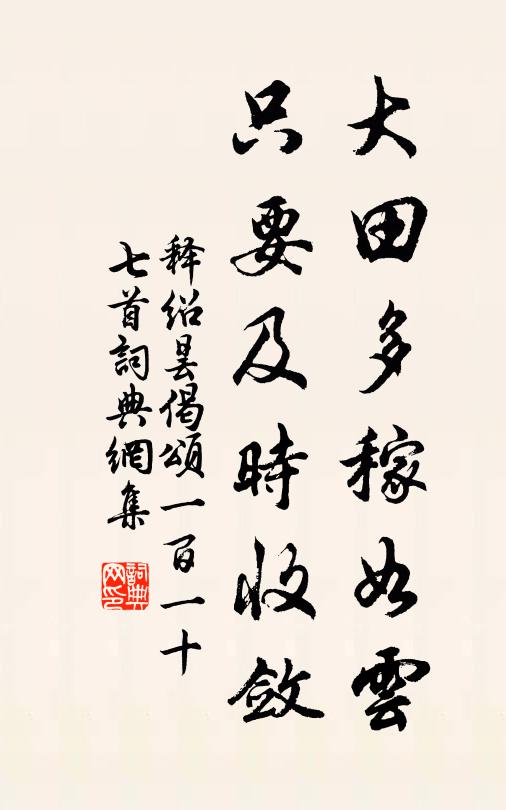 大田多稼如雲
只要及時收斂
释紹曇偈頌一百一十
七首詞典網集
詞典网印